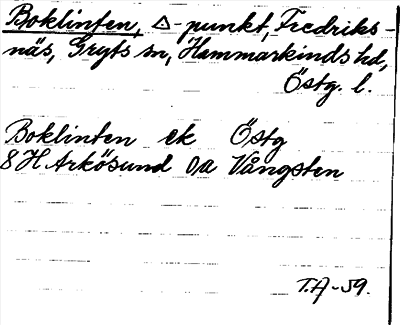 Boklinten, △-punkt, Fredriks-
näs, Gryts sn, Hammarkinds hd,
Östg. l.
Boklinten ek Östg
8H Arkösund 0/a Vångsten
T.A-59.